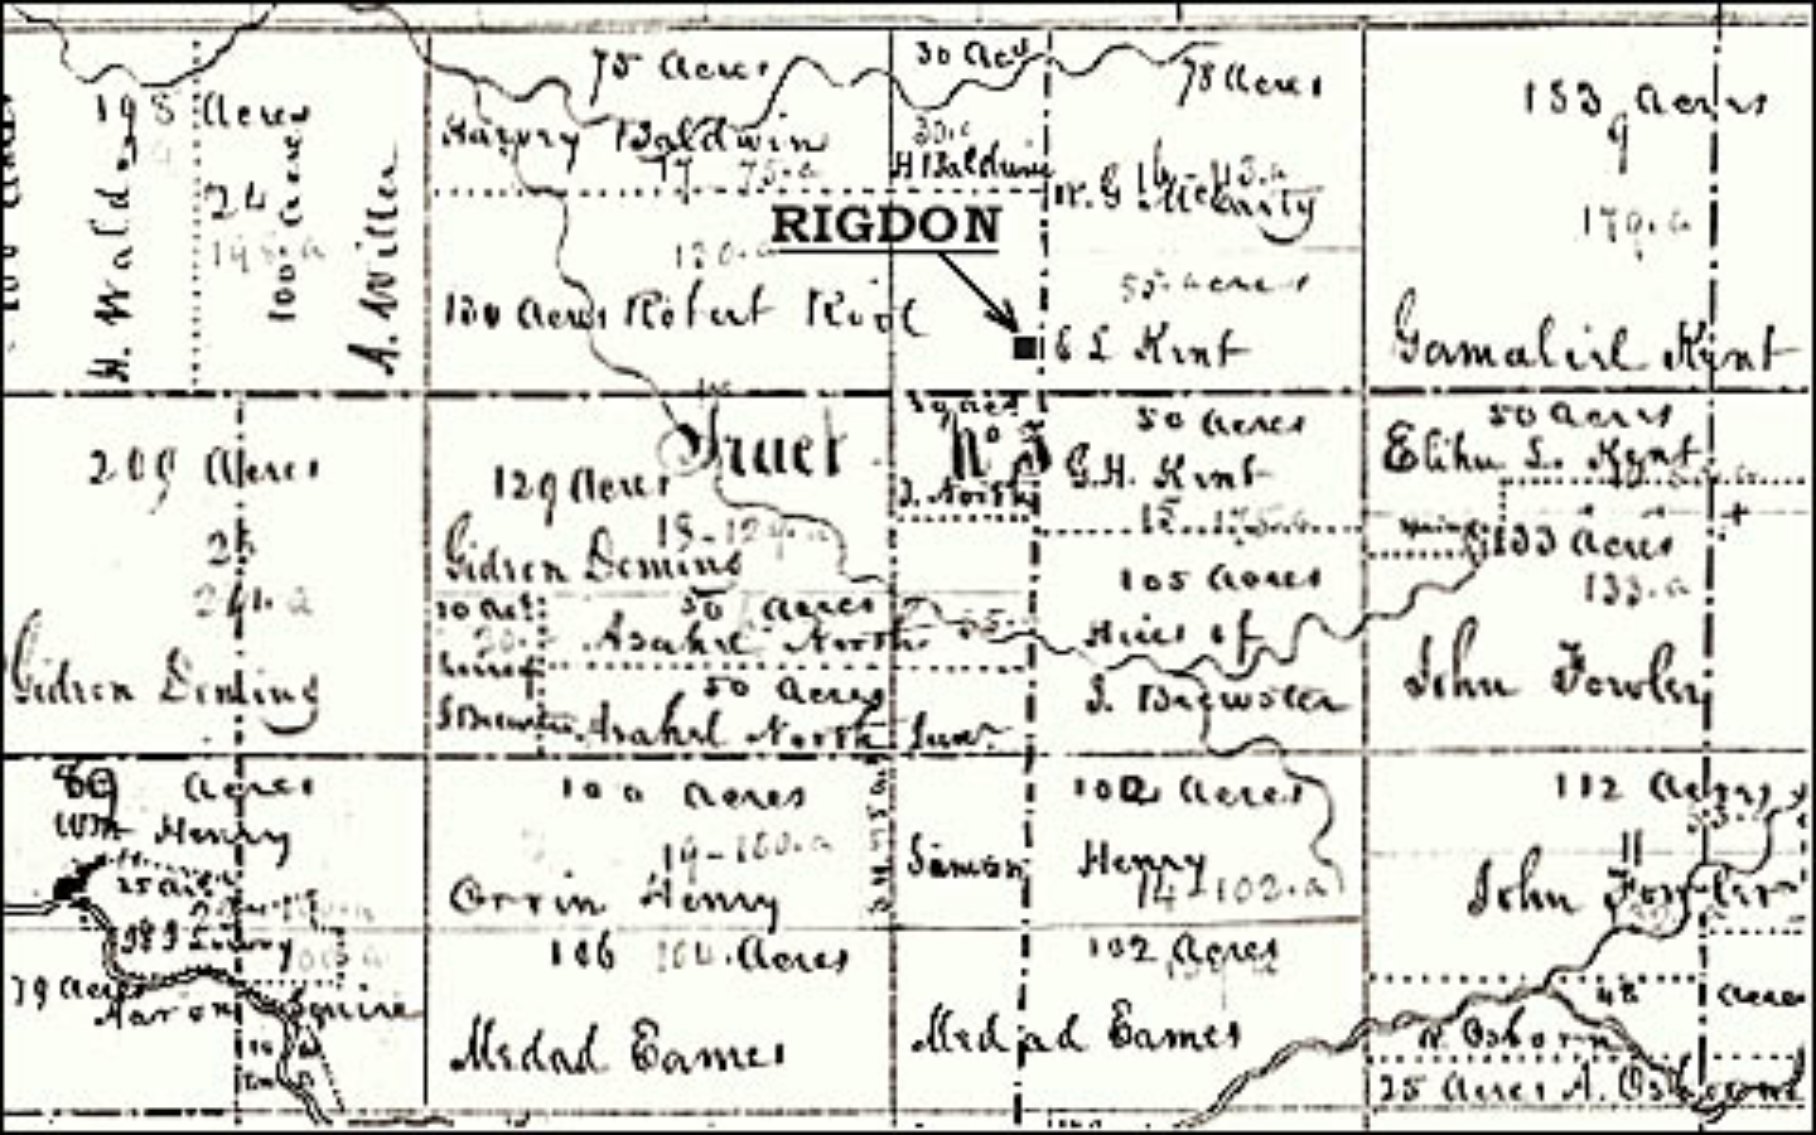 75 Acres
30 Acs
78 Acres
153 Acres
198 Acres
Harvry Baldwin
17 75.a
30.a
H Baldwin
16 - 43.a
W. G McCarty
24
H. Waldo
100 acres
A. Willer
RIGDON
130.a
179.a
55 acres
130 Acres Robert Kidd
E L Kent
Gamaliel Kent
59 acs
50 Acres
50 Acres
Tract No 3
G.H. Kent
Elihu L. Kent
209 Acres
129 Acres
J. North
18-129.a
15
25
Gidron Deming
133 Acres
133.a
105 Acres
50 Acres
10 Acs
Asahel North
55
Heirs of
Gidron Deming
John Fowler
50 Acres
S Brewster
Asahel North Junr.
J. Brewster
89 Acres
100 acres
102 Acres
112 Acres
Wm Henry
19-100.a
Simon Henry
11
25 Acs
Orrin Henry
14-102.a
John Fowler
106 104. Acres
102 Acres
79 Acres
Aaron Squire
48 Acres
Medad Eames
Medad Eames
N. Osborn
25 Acres A. Osborne